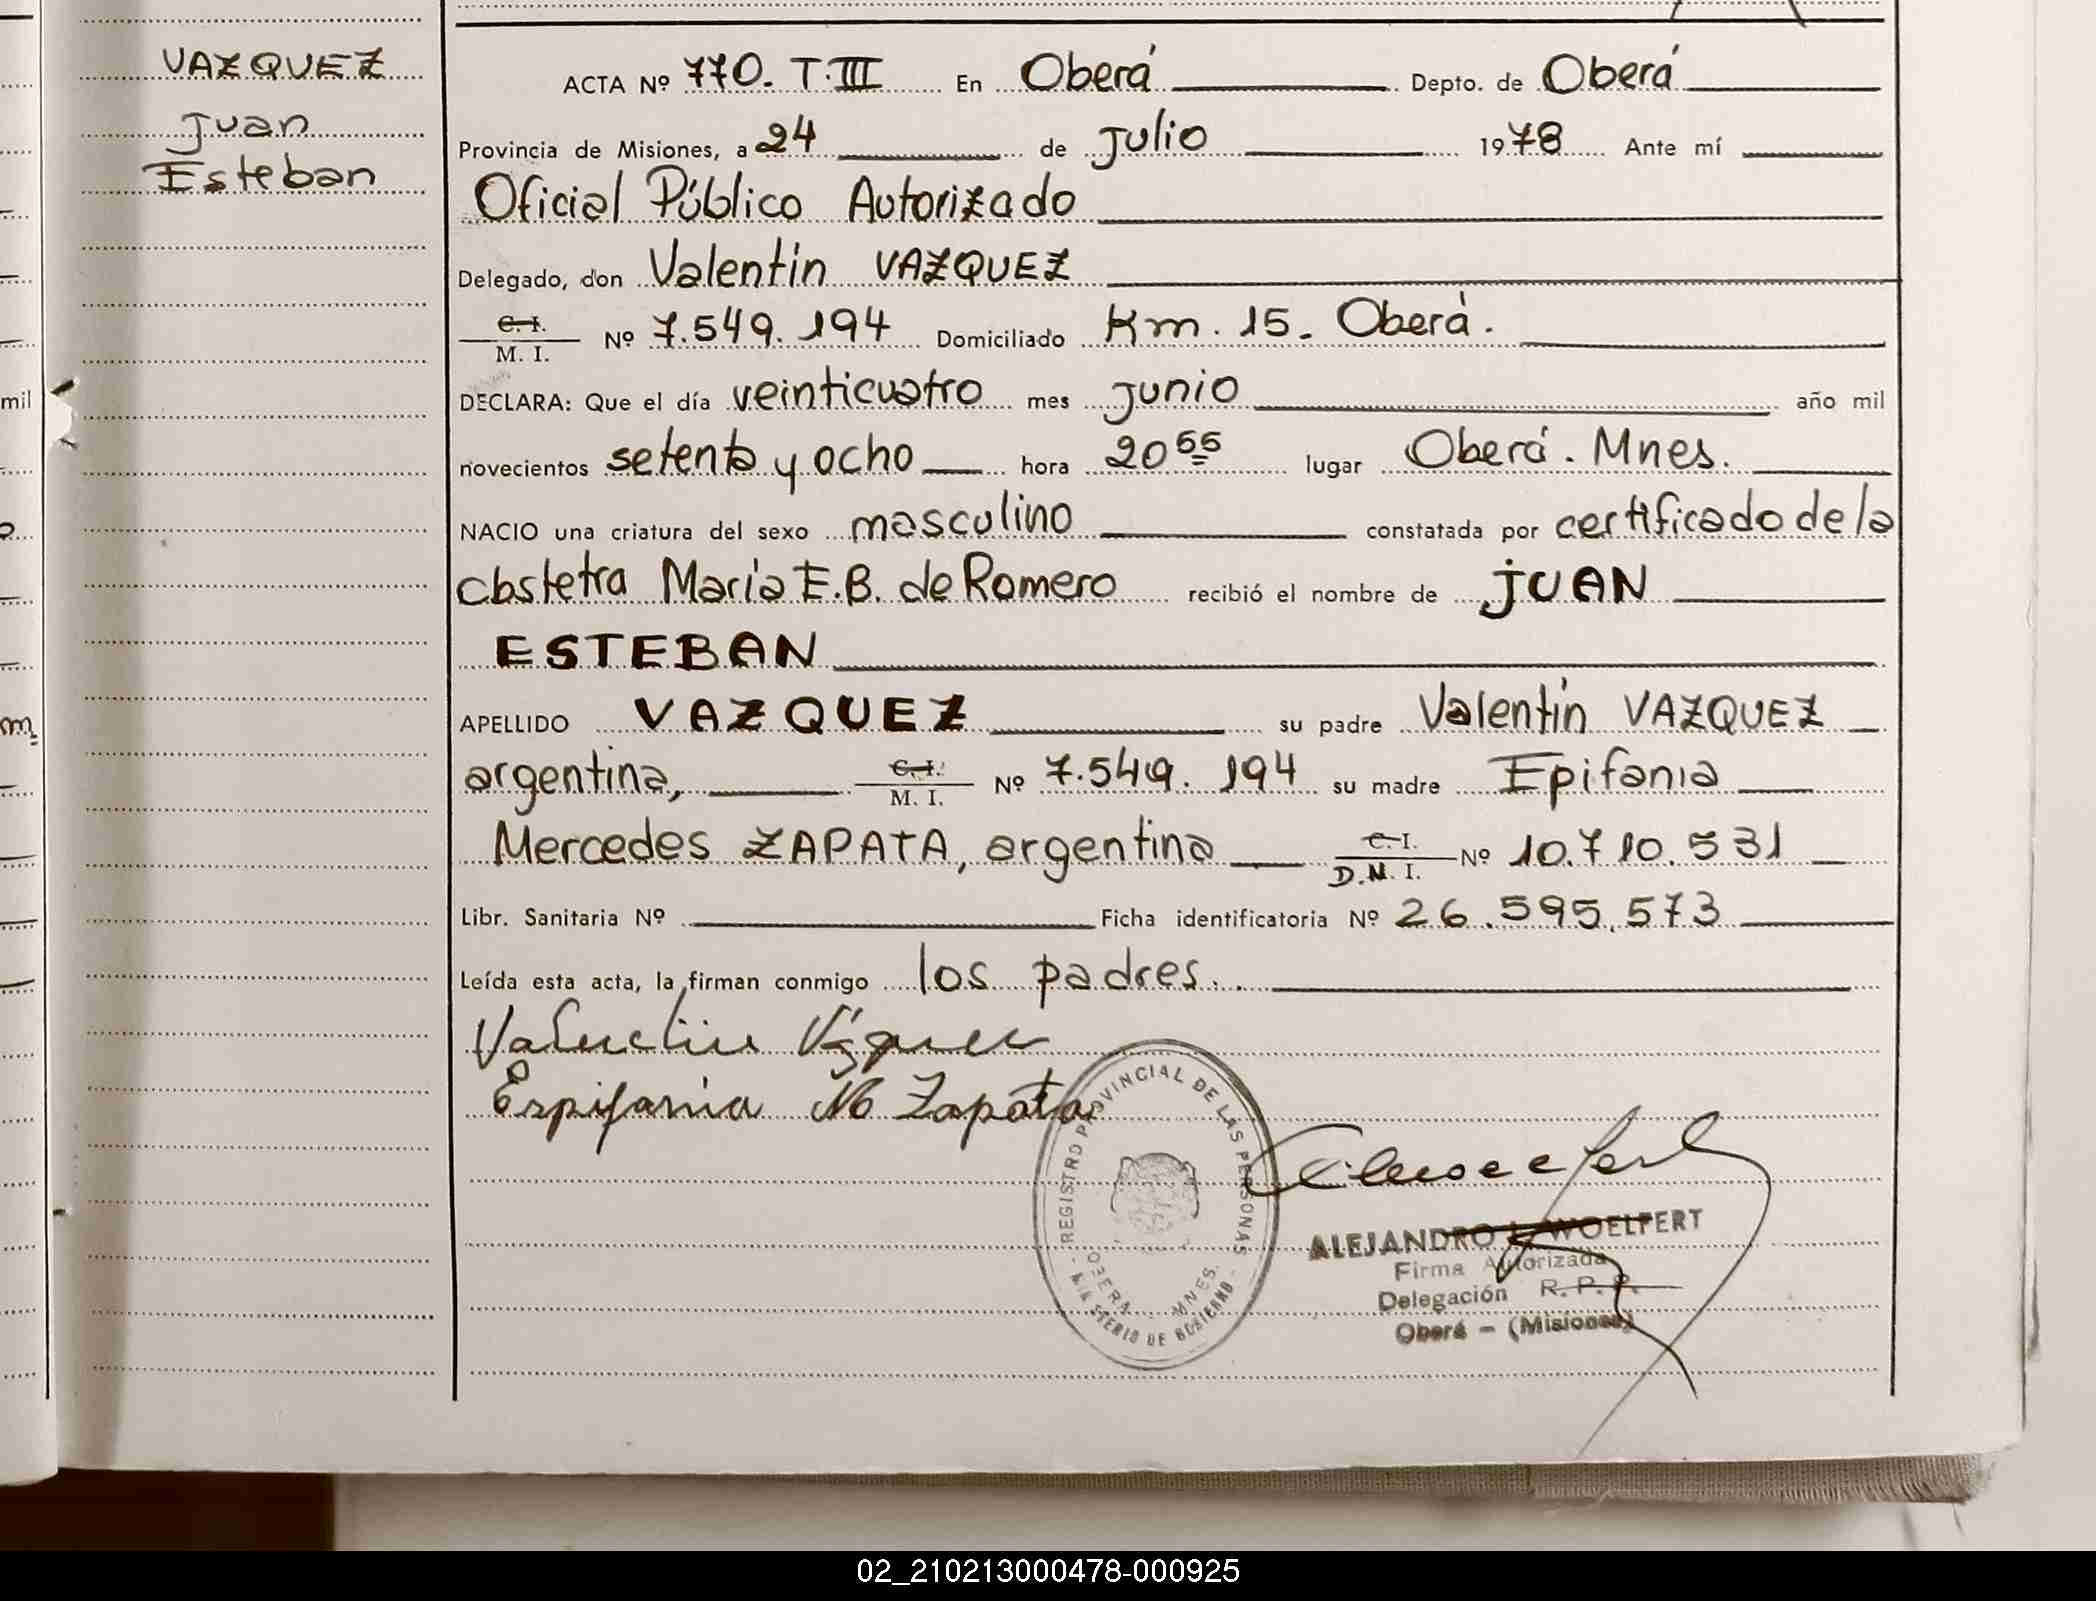 VAZQUEZ
Juan
Esteban
ACTA Nº 770. T.III En Oberá Depto. de Oberá
Provincia de Misiones, a 24 de Julio 1978 Ante mí
Oficial Público Autorizado
Delegado, don Valentín VAZQUEZ
C. I. / M. I. Nº 7.549.194 Domiciliado Km. 15. Oberá.
mil
DECLARA: Que el día veinticuatro mes junio año mil
novecientos setenta y ocho hora 20 55 lugar Oberá. Mnes.
NACIO una criatura del sexo masculino constatada por certificado de la
obstetra María E.B. de Romero recibió el nombre de JUAN
ESTEBAN
APELLIDO VAZQUEZ su padre Valentín VAZQUEZ
argentina, C. I. / M. I. Nº 7.549.194 su madre Epifania
Mercedes ZAPATA, argentina C. I. / D.N. I. Nº 10.710.531
Libr. Sanitaria Nº Ficha identificatoria Nº 26.595.573
Leída esta acta, la firman conmigo los padres.
Valentin Vázquez
Epifania M Zapata
REGISTRO PROVINCIAL DE LAS PERSONAS
OBERA MNES.
MINISTERIO DE GOBIERNO
ALEJANDRO L. WOELFERT
Firma Autorizada
Delegación R. P. P.
Oberá - (Misiones)
02_210213000478-000925